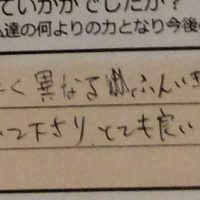 ていかがでしたか？
達の何よりの力となり今後
く異なる ふんい
って下さり、とても良い